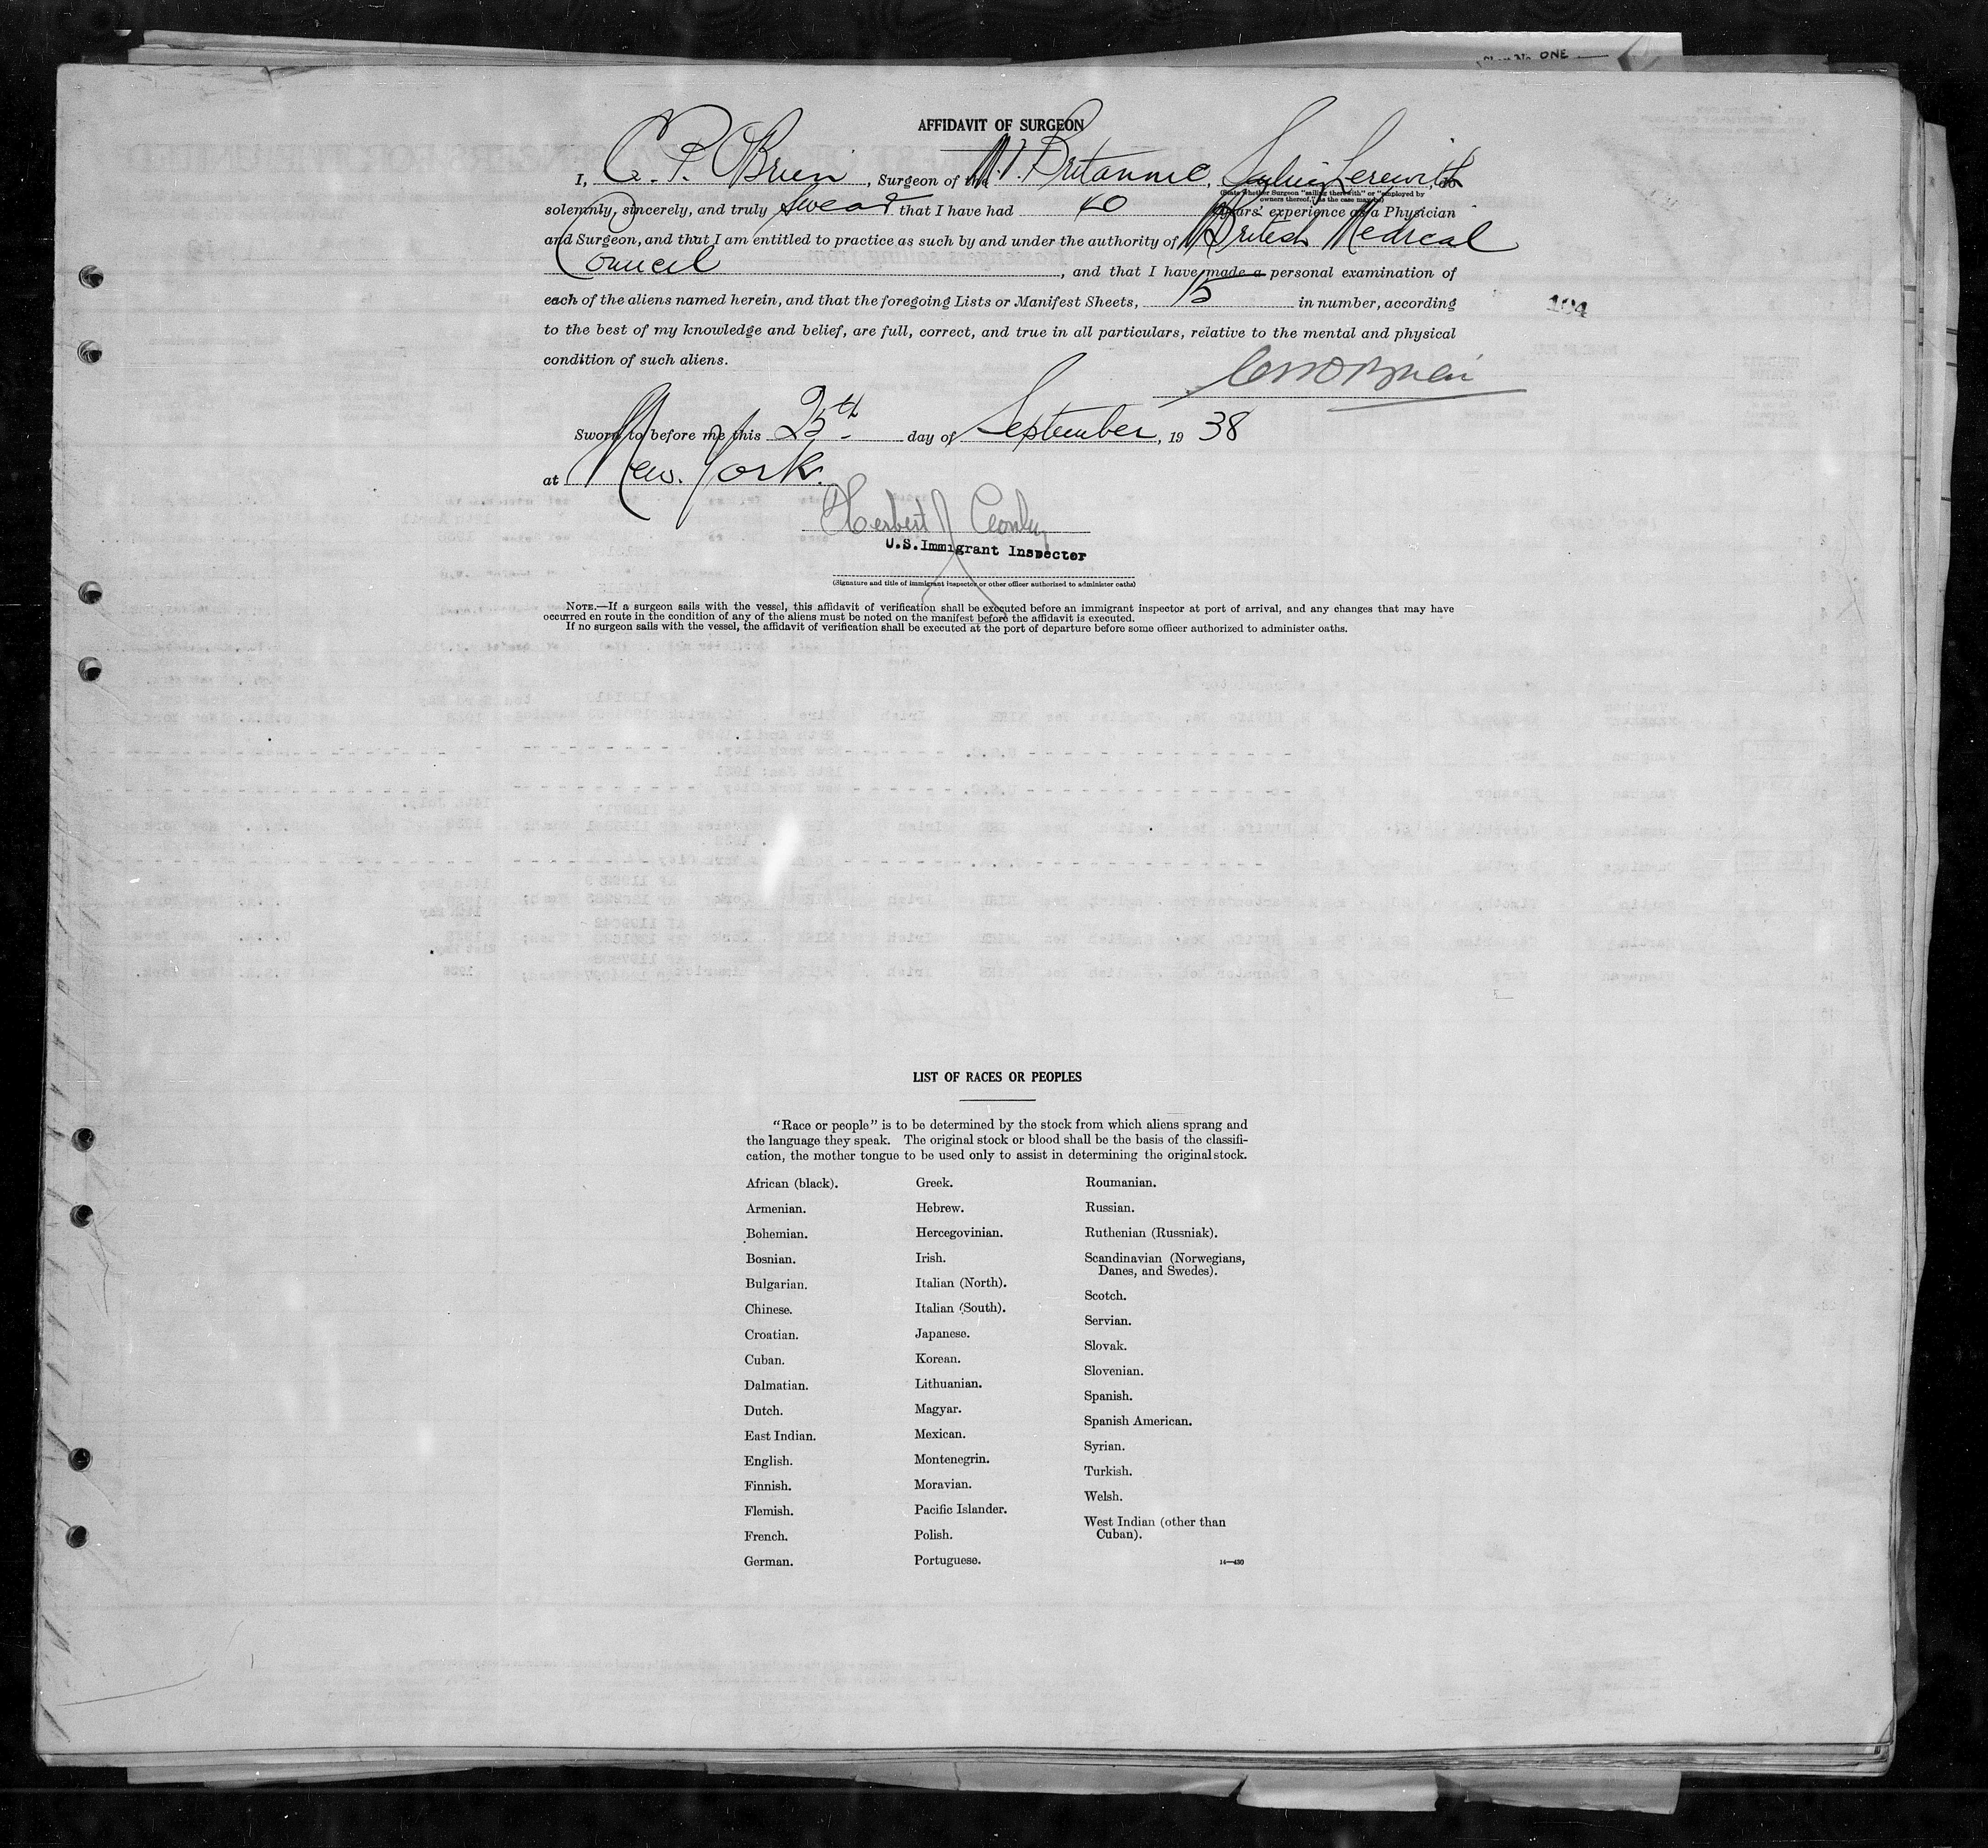 ONE
AFFIDAVIT OF SURGEON
I, C. P. OBrien, Surgeon of the M.V. Britannic, Sailing Therewith, do
(State whether Surgeon "sailing therewith" or "employed by
owners thereof," as the case may be)
solemnly, sincerely, and truly swear that I have had 40 years' experience as a Physician
and Surgeon, and that I am entitled to practice as such by and under the authority of British Medical
Council, and that I have made a personal examination of
each of the aliens named herein, and that the foregoing Lists or Manifest Sheets, 15 in number, according
104
to the best of my knowledge and belief, are full, correct, and true in all particulars, relative to the mental and physical
condition of such aliens.
Sworn to before me this 25th day of September, 19 38
at New York.
Herbert J
U.S. Immigrant Inspector
(Signature and title of immigrant inspector or other officer authorized to administer oaths)
NOTE.—If a surgeon sails with the vessel, this affidavit of verification shall be executed before an immigrant inspector at port of arrival, and any changes that may have
occurred en route in the condition of any of the aliens must be noted on the manifest before the affidavit is executed.
If no surgeon sails with the vessel, the affidavit of verification shall be executed at the port of departure before some officer authorized to administer oaths.
LIST OF RACES OR PEOPLES
"Race or people" is to be determined by the stock from which aliens sprang and
the language they speak. The original stock or blood shall be the basis of the classifi-
cation, the mother tongue to be used only to assist in determining the original stock.
African (black).
Armenian.
Bohemian.
Bosnian.
Bulgarian.
Chinese.
Croatian.
Cuban.
Dalmatian.
Dutch.
East Indian.
English.
Finnish.
Flemish.
French.
German.
Greek.
Hebrew.
Hercegovinian.
Irish.
Italian (North).
Italian (South).
Japanese.
Korean.
Lithuanian.
Magyar.
Mexican.
Montenegrin.
Moravian.
Pacific Islander.
Polish.
Portuguese.
Roumanian.
Russian.
Ruthenian (Russniak).
Scandinavian (Norwegians,
Danes, and Swedes).
Scotch.
Servian.
Slovak.
Slovenian.
Spanish.
Spanish American.
Syrian.
Turkish.
Welsh.
West Indian (other than
Cuban).
14—430